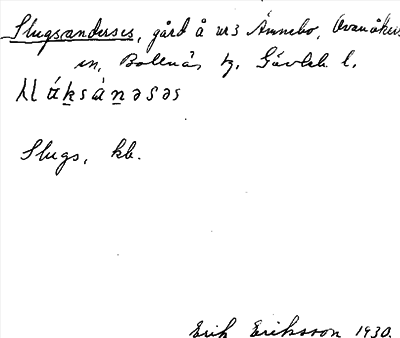 Slugsanderses, gård å nr 3 Ämnebo, Ovanåkers
sn, Bollnäs tg, Gävleb. l.
Slugs, kb.
Erik Eriksson 1930.